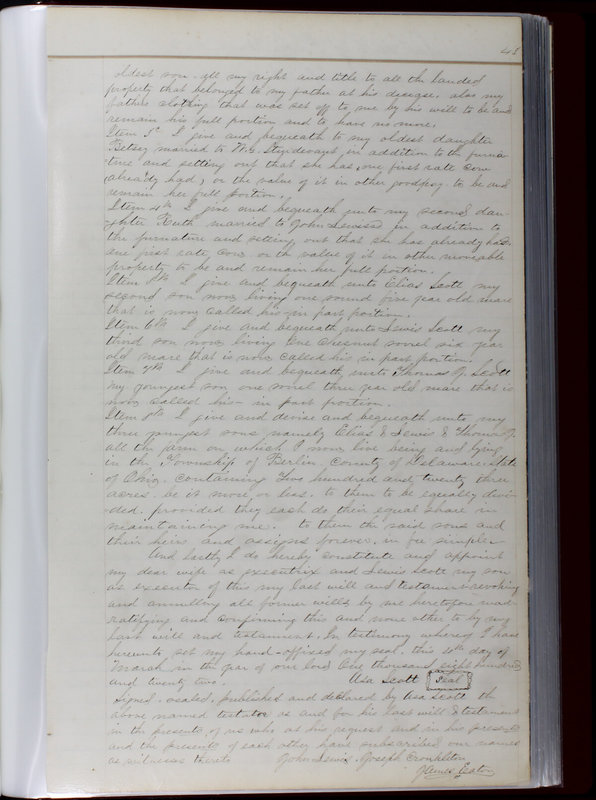 48
oldest son. all my right and title to all the landed
property that belonged to my father at his decease, also my
fathers clothing that was set off to me by his will to be and
remain his full portion and to have no more.
Item 3d I give and bequeath to my oldest daughter
Betsey married to W. C. Sturdevant in addition to the furna
ture and setting out that she has, one first rate Cow
already had, or the value of it in other good to be and
remain her full portion.
Item 4th I give and bequeath unto my second dau-
ghter Ruth married to John Lewis in addition to
the furnature and setting out that she has already had.
one first rate Cow. or the value of it in other moveable
property to be and remain her full portion.
Item 5th I give and bequeath unto Elias Scott my
second son now living one sound five year old mare
that is now called his in part portion.
Item 6th I give and bequeath unto Lewis Scott my
third son now living One Chesnut sorrel six year
old mare that is now called his in part portion.
Item 7th I give and bequeath unto Thomas G. Scott
my youngest son one sorrel three year old mare that is
now called his in part portion.
Item 8th I give and devise and bequeath unto my
three youngest sons namely Elias & Lewis & Thomas G.
all the farm on which I now live being and lying
in the Township of Berlin. County of Delaware. State
of Ohio. Containing Two hundred and twenty three
acres. be it more or less. to them to be equally divi-
ded. provided they each do their equal share in
maintaining me. to them the said sons and
their heirs and assigns forever. in fee simple.
And lastly I do hereby constitute and appoint
my dear wife as executrix and Lewis Scott my son
as executor of this my last will and testament revoking
and annulling all former wills by me heretofore mad
ratifying and confirming this and none other to by my
last will and testament. In testimony whereof I have
hereunto set my hand affixed my seal. this 10th day of
March in the year of our lord One thousand eight hundred
and twenty two. Asa Scott Seal
Signed. sealed, published and declared by Asa Scott the
above named testator as and for his last will & testament
in the presents of us who at his request and in his presents
and the presents of each other have subscribed our names
as witnesses thereto John Lewis. Joseph Cronkleton
James Eaton